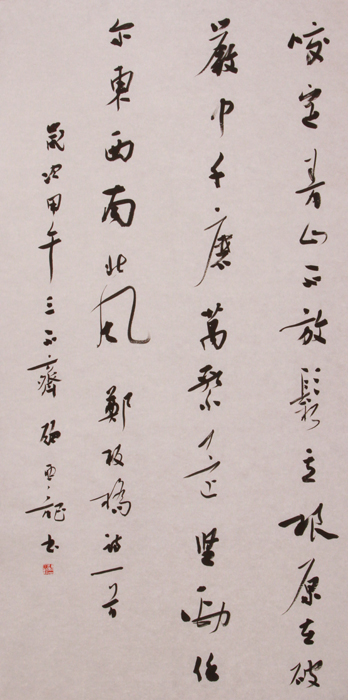 咬定青山不放鬆立根原在破
巖中千磨萬擊還堅勁任
尔東西南北風 鄭板橋詩一首
歲次甲午三不齋